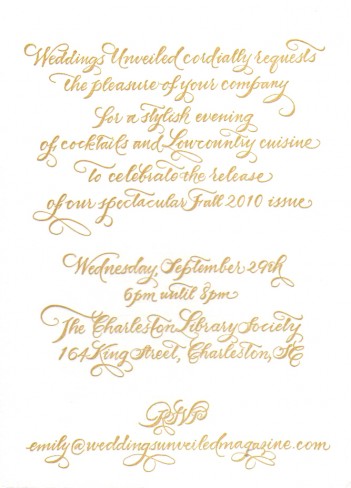 Weddings Unveiled cordially requests
the pleasure of your company
for a stylish evening
of cocktails and Lowcountry cuisine
to celebrate the release
of our spectacular Fall 2010 issue
Wednesday, September 29th
6pm until 8pm
The Charleston Library Society
164 King Street, Charleston, SC
RSVP
emily@weddingsunveiledmagazine.com